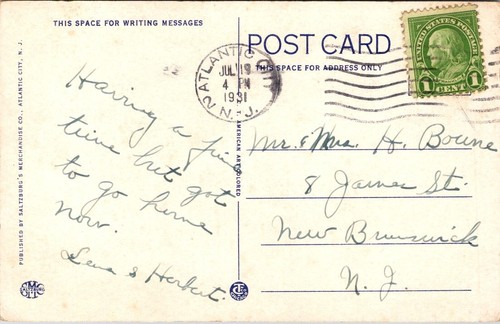 THIS SPACE FOR WRITING MESSAGES
POST CARD
THIS SPACE FOR ADDRESS ONLY
UNITED STATES POSTAGE
1 CENT 1
ATLANTIC
JUL 19
4 PM
1931
N. J.
Having a fine
time but got
to go home
now.
Lena & Herbert.
Mr. & Mrs. H. Bourne
8 James St.
New Brunswick
N. J.
PUBLISHED BY SALTZBURG'S MERCHANDISE CO., ATLANTIC CITY, N. J.
AMERICAN ART COLORED